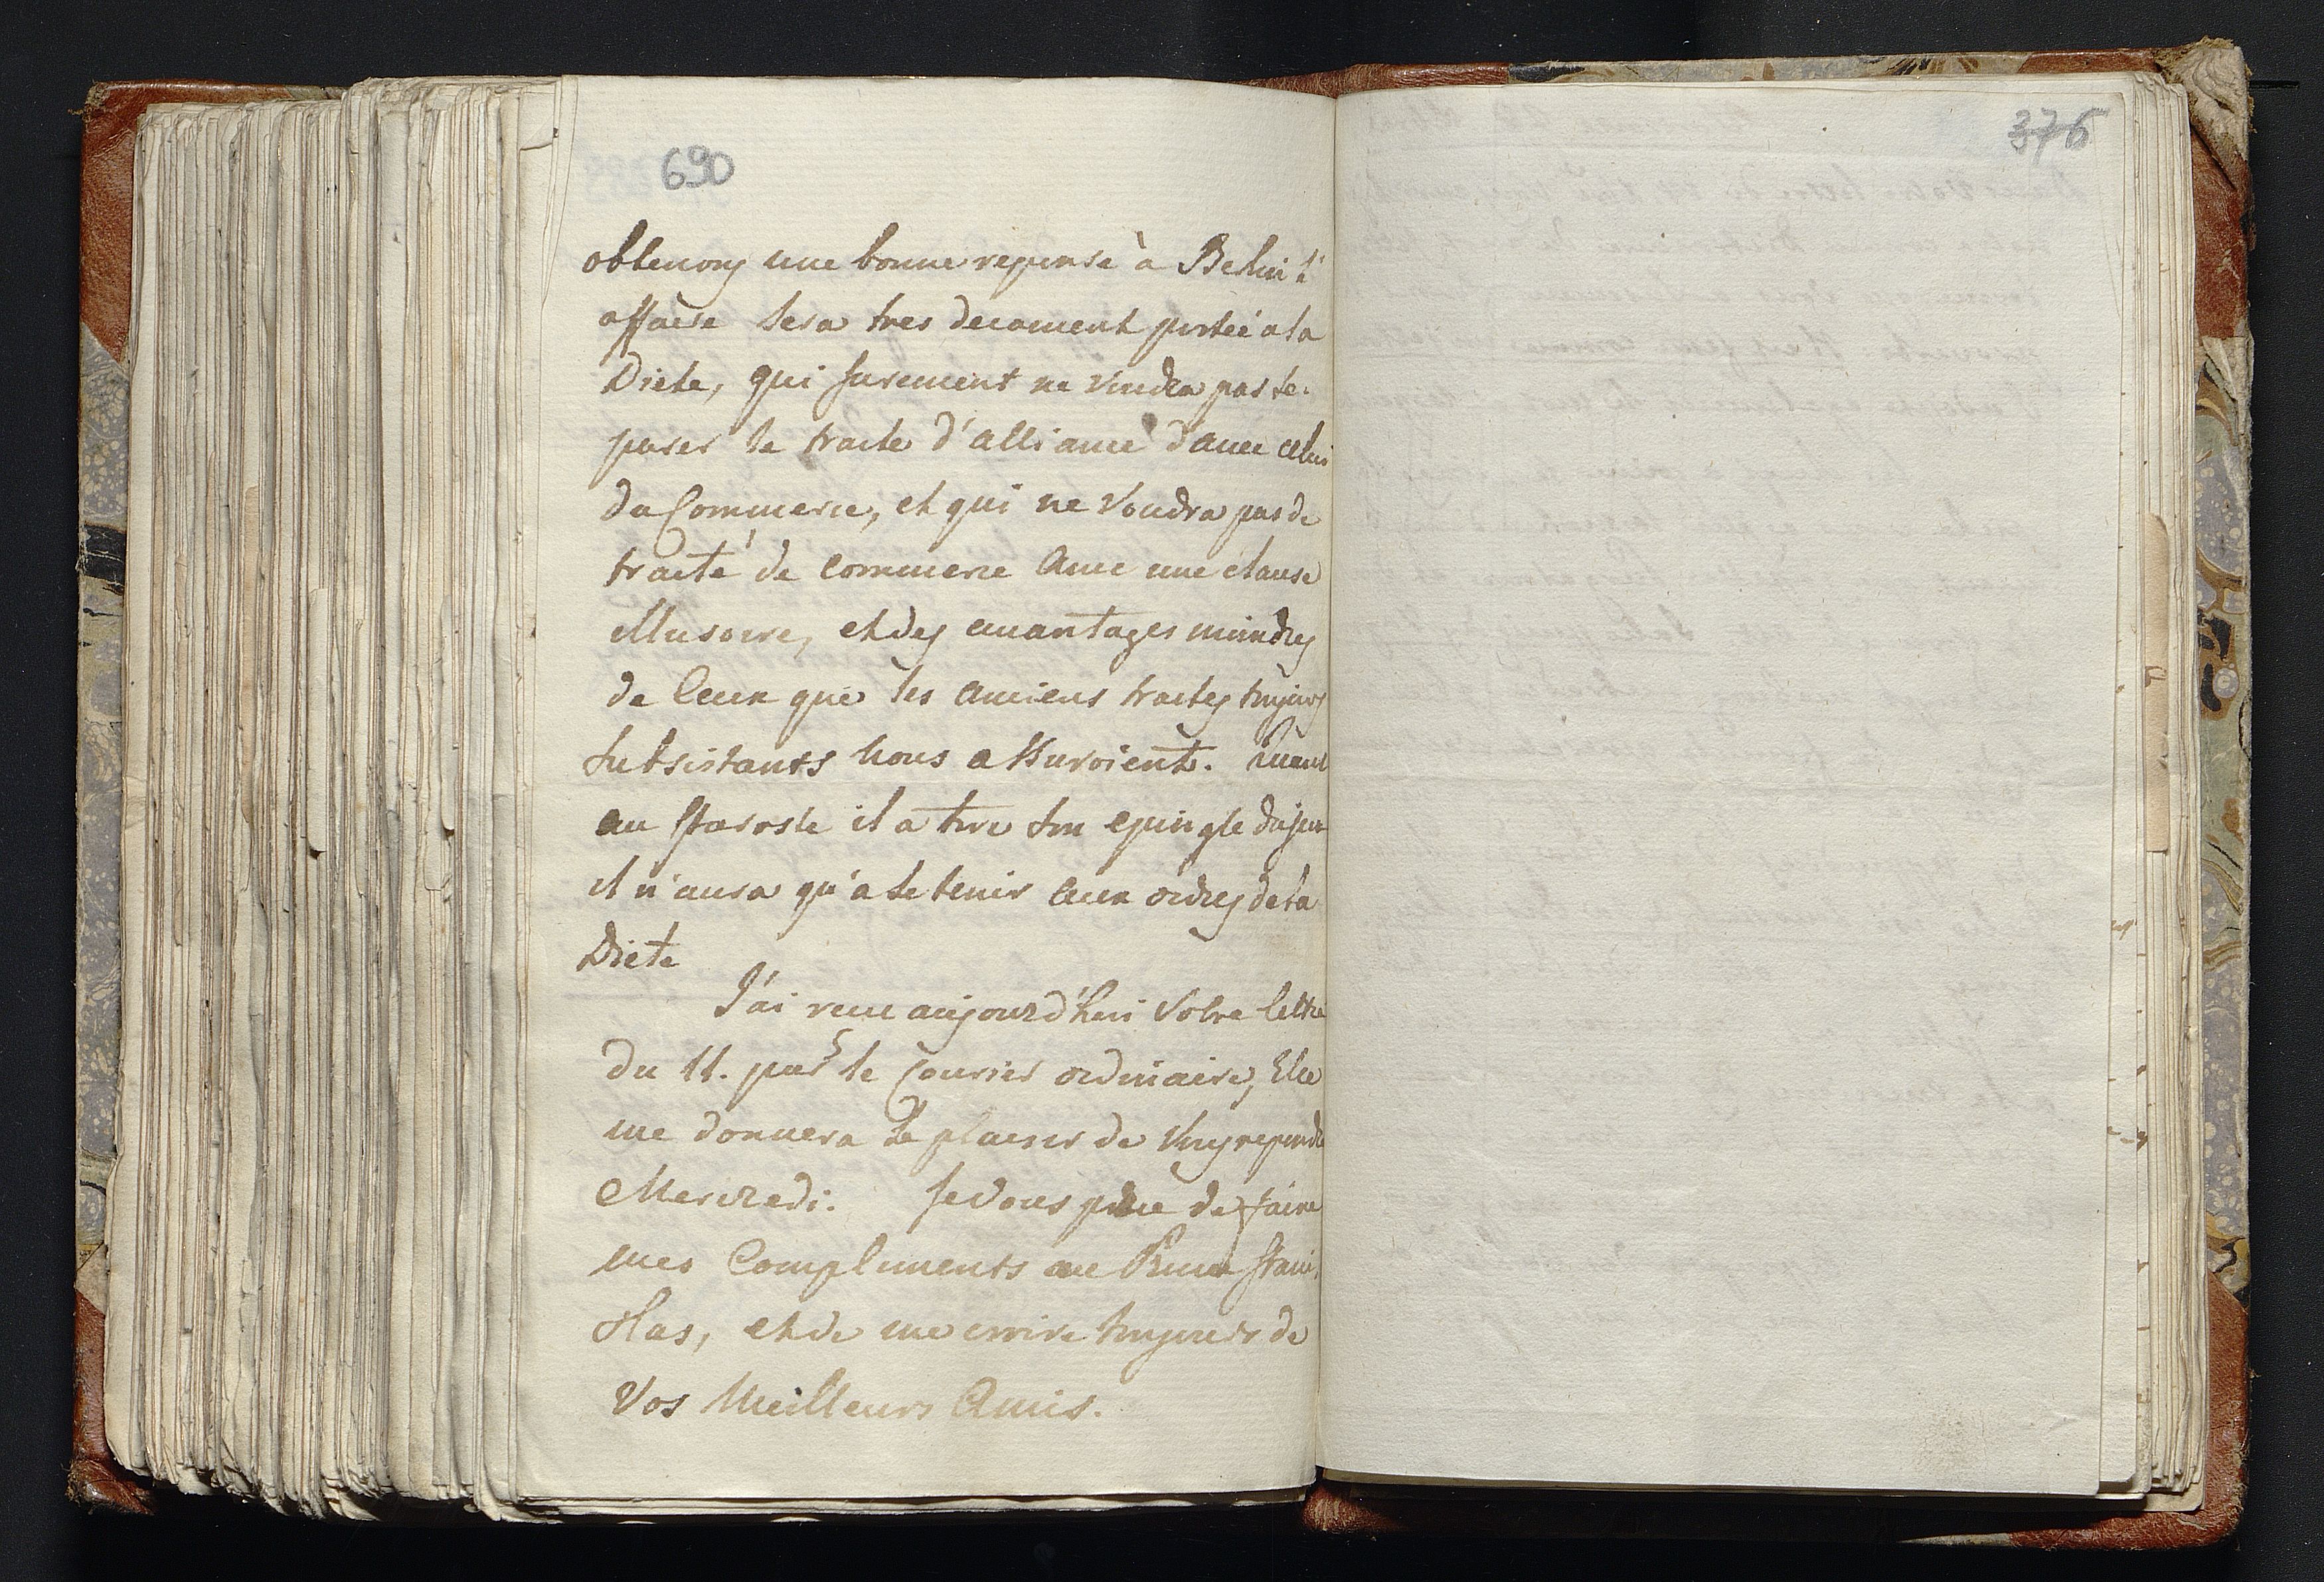 690
obtenons une bonne reponse à Berlin l'
affaire sera tres decament portée a la
Diete, qui surement ne voudra pas se-
parer le traite d'alliance d'avec celui
du Commerce, et qui ne voudra pas de
traité de commerce avec une clause
illusoire, et des avantages moindres
de ceux que les anciens traites toujours
subsistants nous assuroient. Quant
au staroste il a tire son epingle du jeu
il n'aura qu'a se tenir aux ordres de la
Diete
J'ai recu aujourd'hui votre lettre
du 11. par le Courier ordinaire, Elle
me donnera le plaisir de vous repondre
Mercredi. Je vous prie de faire
mes Compliments au Prince Stani-
slas, et de me croire toujours de
vos Meilleurs Amis.
376